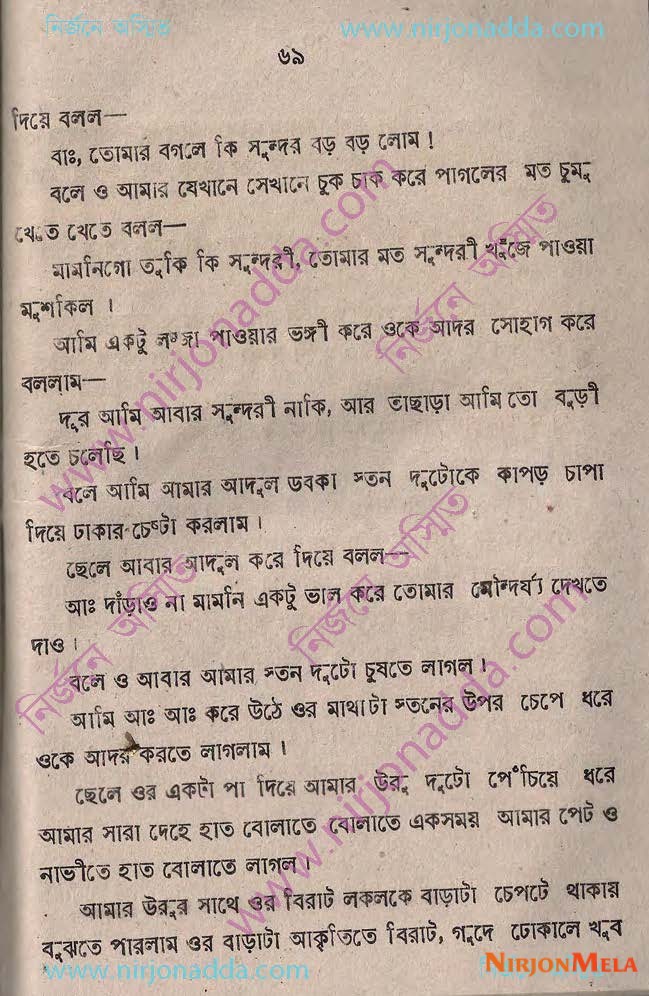 নির্জনে অস্মিত www.nirjonadda.com
৬৯
দিয়ে বলল—
বাঃ, তোমার বগলে কি সুন্দর বড় বড় লোম !
বলে ও আমার যেখানে সেখানে চুক চাক করে পাগলের মত চুমু
খেতে খেতে বলল—
মামনিগো তুকি কি সুন্দরী, তোমার মত সুন্দরী খুঁজে পাওয়া
মুশকিল ।
আমি একটু লজ্জা পাওয়ার ভঙ্গী করে ওকে আদর সোহাগ করে
বললাম—
দূর আমি আবার সুন্দরী নাকি, আর তাছাড়া আমি তো বুড়ী
হতে চলেছি ।
বলে আমি আমার আদুল ডবকা স্তন দুটোকে কাপড় চাপা
দিয়ে ঢাকার চেষ্টা করলাম ।
ছেলে আবার আদুল করে দিয়ে বলল—
আঃ দাঁড়াও না মামনি একটু ভাল করে তোমার সৌন্দর্য্য দেখতে
দাও ।
বলে ও আবার আমার স্তন দুটো চুষতে লাগল !
আমি আঃ আঃ করে উঠে ওর মাথাটা স্তনের উপর চেপে ধরে
ওকে আদর করতে লাগলাম ।
ছেলে ওর একটা পা দিয়ে আমার উরু দুটো পেঁচিয়ে ধরে
আমার সারা দেহে হাত বোলাতে বোলাতে একসময় আমার পেট ও
নাভীতে হাত বোলাতে লাগল ।
আমার উরুর সাথে ওর বিরাট লকলকে বাড়াটা চেপটে থাকায়
বুঝতে পারলাম ওর বাড়াটা আকৃতিতে বিরাট, গুদে ঢোকালে খুব
www.nirjonadda.com NIRJONMELA
www.nirjonadda.com নির্জনে অস্মিত
নির্জনে অস্মিত
নির্জনে অস্মিত
www.nirjonadda.com